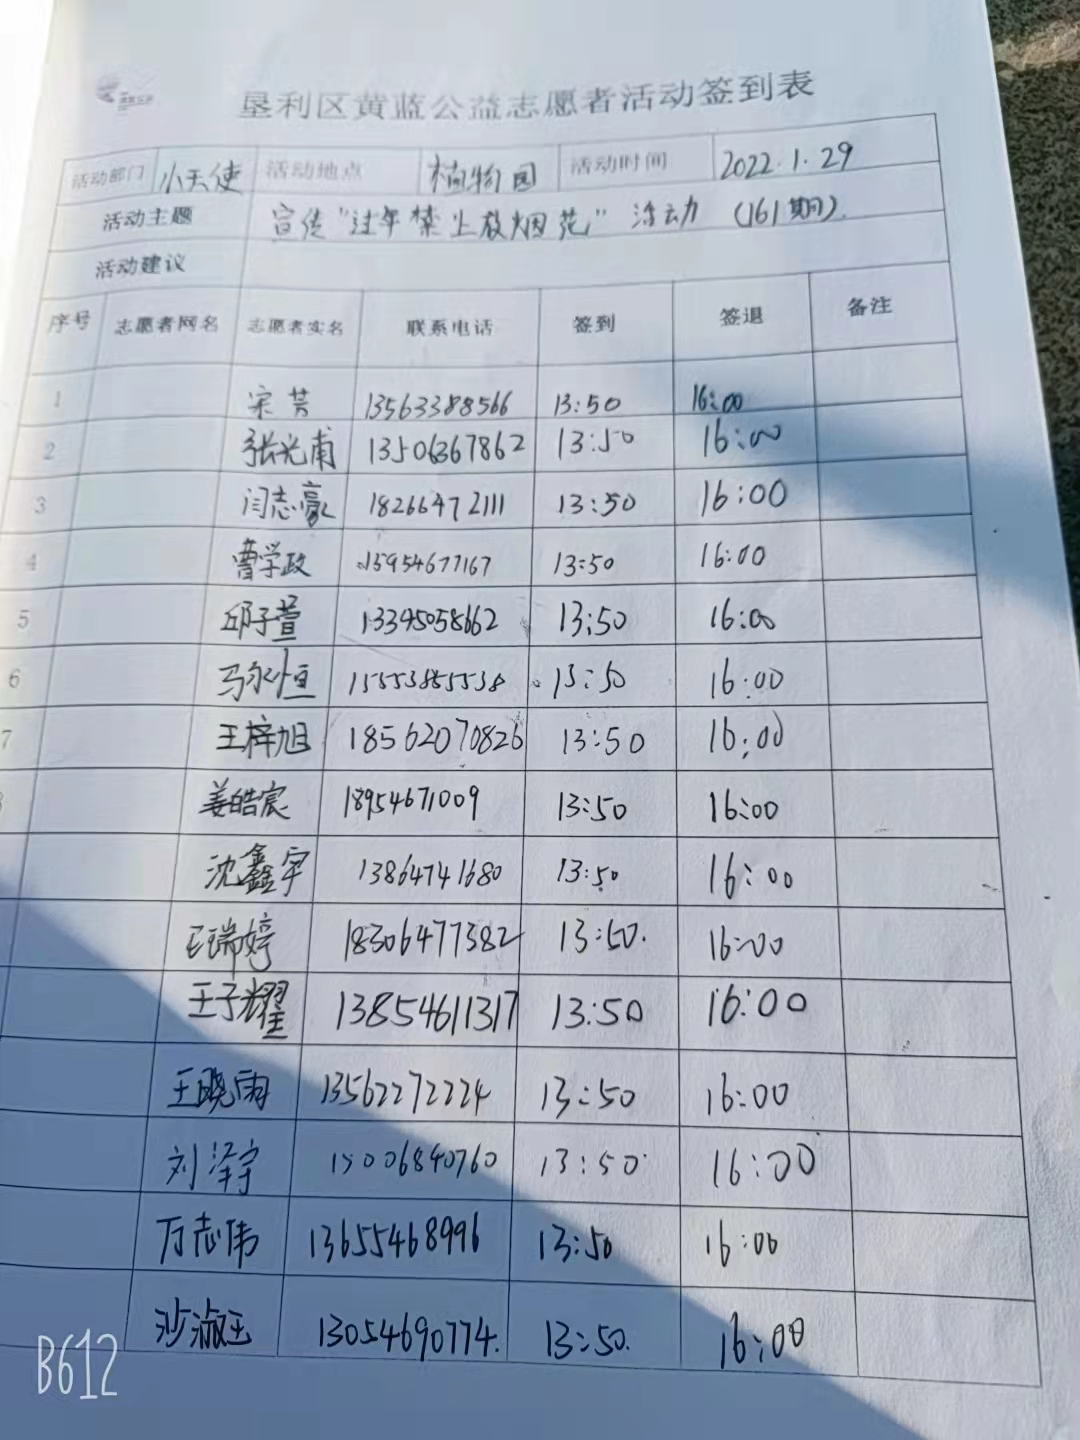 垦利区黄蓝公益志愿者活动签到表
活动部门 小天使 活动地点 植物园 活动时间 2022.1.29
活动主题 宣传"过年禁止放烟花" 活动 (161期)
活动建议
序号 志愿者网名 志愿者实名 联系电话 签到 签退 备注
1 宋芳 13563388566 13:50 16:00
2 张光甫 13506367862 13:50 16:00
3 闫志豪 18266472111 13:50 16:00
4 曹学政 15954677167 13:50 16:00
5 邱子萱 13395058662 13:50 16:00
6 马永恒 15553855538 13:50 16:00
7 王梓旭 18562070826 13:50 16:00
姜皓宸 18954671009 13:50 16:00
沈鑫宇 13864741680 13:50 16:00
王瑞婷 18306477382 13:50. 16:00
王子耀 13854611317 13:50 16:00
王晓雨 13562272224 13:50 16:00
刘泽宇 15006840760 13:50 16:00
万志伟 13655468996 13:50 16:00
沙淑玉 13054690774. 13:50. 16:00
B612